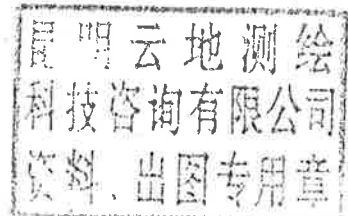 昆明云地测绘
科技咨询有限公司
资料、出图专用章